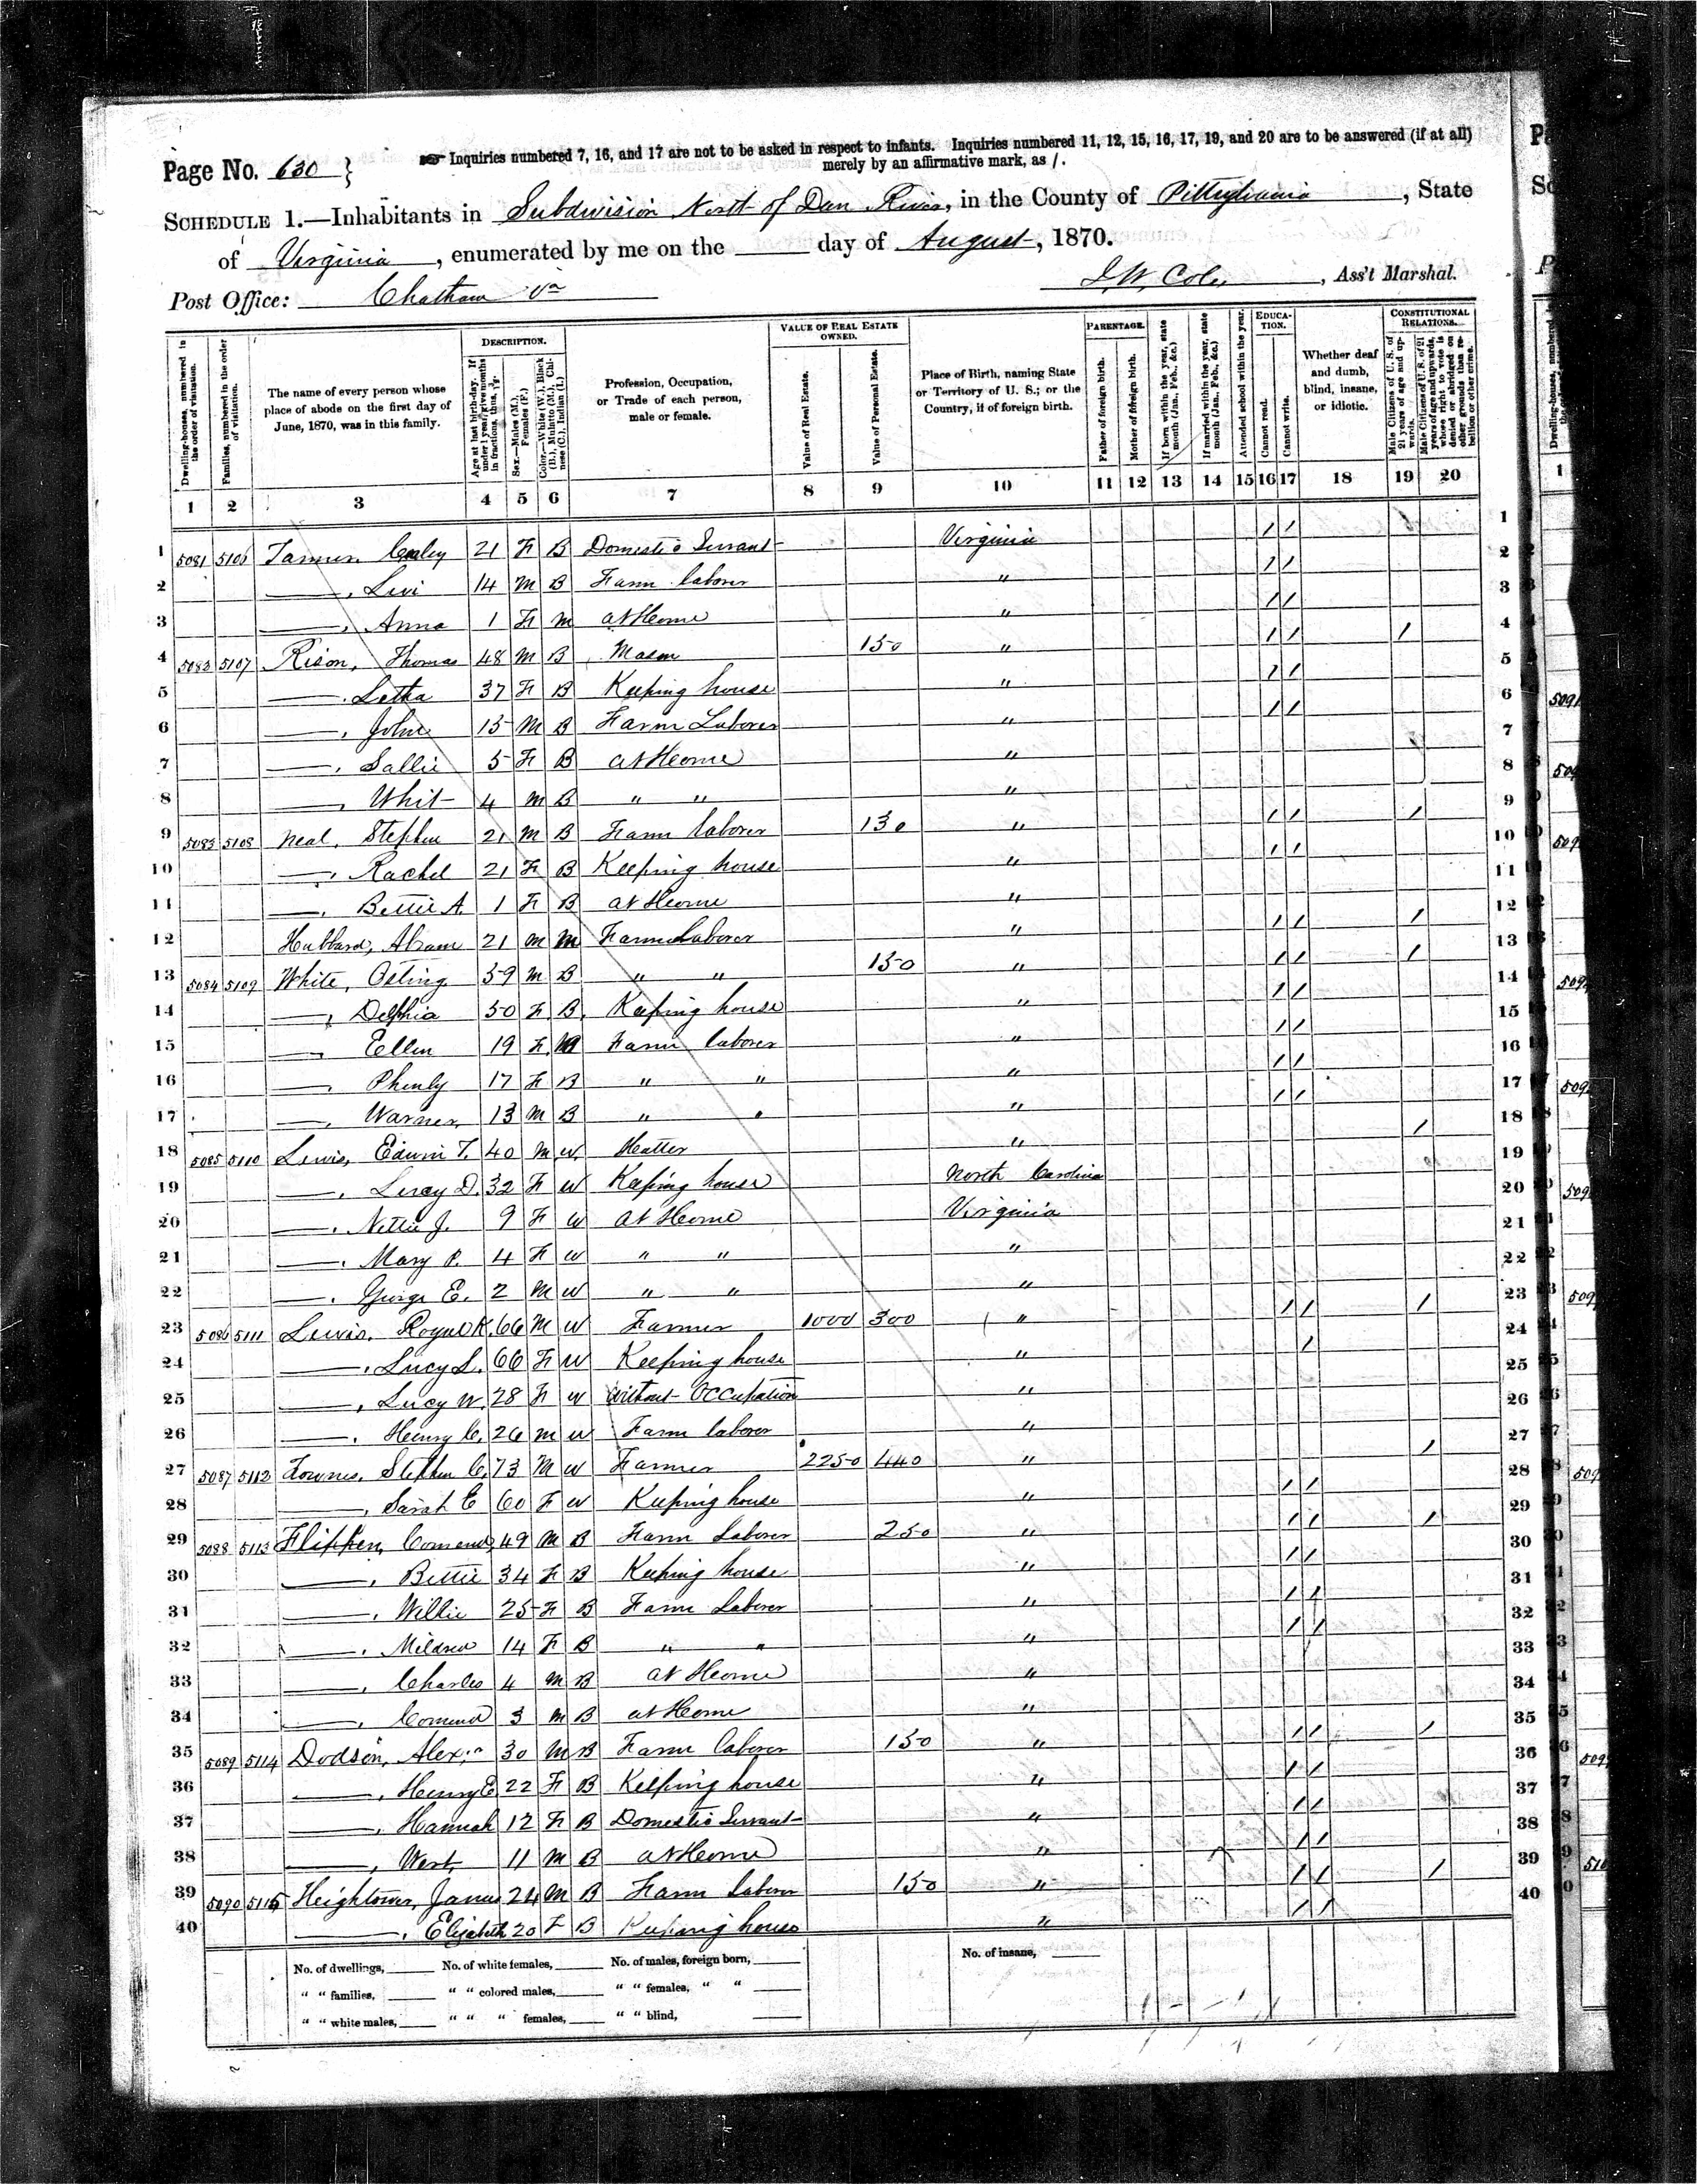 Page No. 630 }
Inquiries numbered 7, 16, and 17 are not to be asked in respect to infants. Inquiries numbered 11, 12, 15, 16, 17, 19, and 20 are to be answered (if at all)
merely by an affirmative mark, as /.
SCHEDULE 1.—Inhabitants in Subdivision North of Dan River, in the County of Pittsylvania, State
of Virginia, enumerated by me on the ____ day of August, 1870.
Post Office: Chatham Va
J. W. Coles, Ass't Marshal.
DESCRIPTION. VALUE OF REAL ESTATE OWNED. PARENTAGE. EDUCATION. CONSTITUTIONAL RELATIONS.
Dwelling-houses, numbered in the order of visitation.
Families, numbered in the order of visitation.
The name of every person whose place of abode on the first day of June, 1870, was in this family.
Age at last birth-day. If under 1 year, give months in fractions, thus, 3/12.
Sex.—Males (M.), Females (F.)
Color.—White (W.), Black (B.), Mulatto (M.), Chinese (C.), Indian (I.)
Profession, Occupation, or Trade of each person, male or female.
Value of Real Estate.
Value of Personal Estate.
Place of Birth, naming State or Territory of U. S.; or the Country, if of foreign birth.
Father of foreign birth.
Mother of foreign birth.
If born within the year, state month (Jan., Feb., &c.)
If married within the year, state month (Jan., Feb., &c.)
Attended school within the year.
Cannot read.
Cannot write.
Whether deaf and dumb, blind, insane, or idiotic.
Male Citizens of U. S. of 21 years of age and upwards.
Male Citizens of U. S. of 21 years of age and upwards, whose right to vote is denied or abridged on other grounds than rebellion or other crime.
1 2 3 4 5 6 7 8 9 10 11 12 13 14 15 16 17 18 19 20
1 5081 5106 Tanner 21 F B Domestic Servant Virginia / / 1
2 ——, Levi 14 M B Farm laborer " / / 2
3 ——, Anna 1 F M at Home " / / 3
4 5082 5107 Rison, Thomas 48 M B Mason 150 " / / / 4
5 ——, Letha 37 F B Keeping house " / / 5
6 ——, John 15 M B Farm Laborer " / / 6
7 ——, Sallie 5 F B at Home " 7
8 ——, Whit 4 M B " " " 8
9 5083 5108 Neal, Stephen 21 M B Farm laborer 130 " / / / 9
10 ——, Rachel 21 F B Keeping house " / / 10
11 ——, Bettie A. 1 F B at Home " 11
12 Hubbard, Abram 21 M M Farm Laborer " / / / 12
13 5084 5109 White, 59 M B " " 150 " / / / 13
14 ——, Delphia 50 F B Keeping house " / / 14
15 ——, Ellen 19 F M Farm laborer " / / 15
16 ——, 17 F B " " " / / 16
17 ——, Warner 13 M B " " " / / 17
18 5085 5110 Lewis, Edwin T. 40 M W Hatter " / 18
19 ——, D. 32 F W Keeping house North Carolina 19
20 ——, Nettie J. 9 F W at Home Virginia 20
21 ——, Mary P. 4 F W " " " 21
22 ——, George E. 2 M W " " " 22
23 5086 5111 Lewis, 66 M W Farmer 1000 300 " / / / 23
24 ——, Lucy L. 66 F W Keeping house " / 24
25 ——, Lucy W. 28 F W Without Occupation " 25
26 ——, Henry C. 26 M W Farm laborer " 26
27 5087 5112 Townes, Stephen C. 73 M W Farmer 2250 440 " / 27
28 ——, Sarah E 60 F W Keeping house " / / 28
29 5088 5113 Flippen, 49 M B Farm Laborer 250 " / / / 29
30 ——, Bettie 34 F B Keeping house " / / 30
31 ——, Willie 25 F B Farm Laborer " / / 31
32 ——, Mildred 14 F B " " " / / 32
33 ——, Charles 4 M B at Home " 33
34 ——, 3 M B at Home " 34
35 5089 5114 Dodson, Alex 30 M B Farm laborer 150 " / / / 35
36 ——, Henry E 22 F B Keeping house " / / 36
37 ——, Hannah 12 F B Domestic Servant " / / 37
38 ——, West 11 M B at Home " / / 38
39 5090 5115 Heightower, James 24 M B Farm laborer 150 " / / / 39
40 ——, Elizabeth 20 F B Keeping house " / / 40
No. of dwellings, ____ No. of white females, ____ No. of males, foreign born, ____ No. of insane, ____
" " families, ____ " " colored males, ____ " " females, " " ____
" " white males, ____ " " " females, ____ " " blind, ____